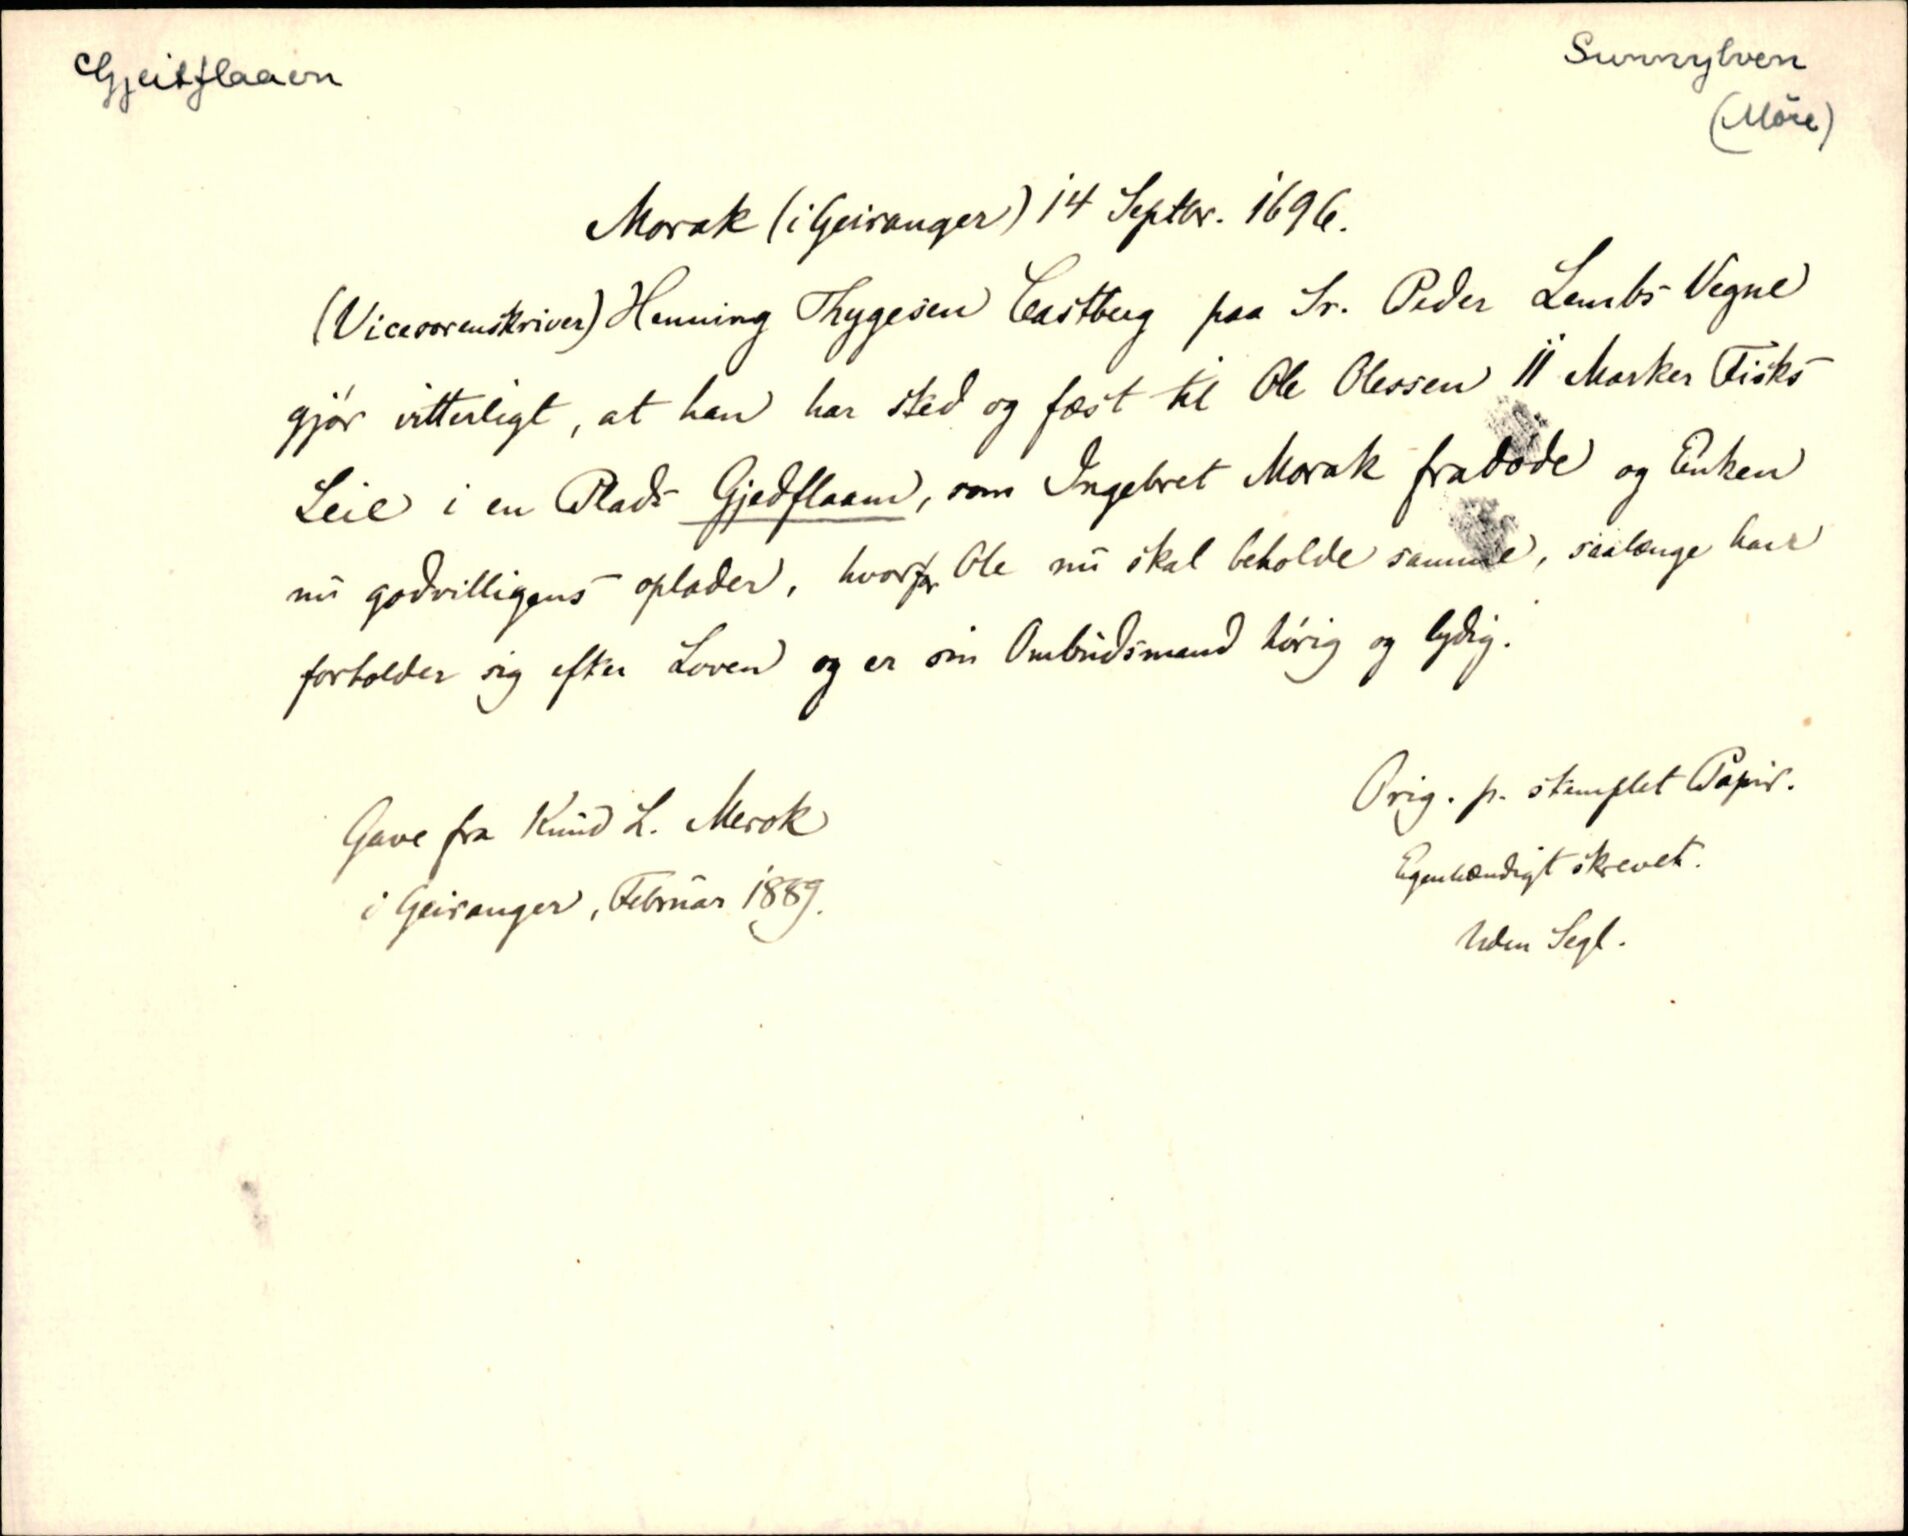 Gjeitflaaen
Sunnylven
(Möre)
Morak (i Geiranger) 14 Septbr. 1696.
(Vicesorenskriver) Henning Thygesen Castberg paa Sr. Peder Lembs Vegne
gjør vitterligt, at han har sted og fæst til Ole Olessen 11 Marker Fisks
Leie i en Plads Gjedflaam, som Ingebret Morak fradøde og Enken
nu godvilligens oplader, hvorfor Ole nu skal beholde samme, saalænge han
forholder sig efter Loven og er sin Ombudsmand hørig og lydig.
Gave fra Knud L. Merok
i Geiranger, Februar 1889.
Orig. p. stemplet Papir.
Egenhændigt skrevet.
Uden Segl.